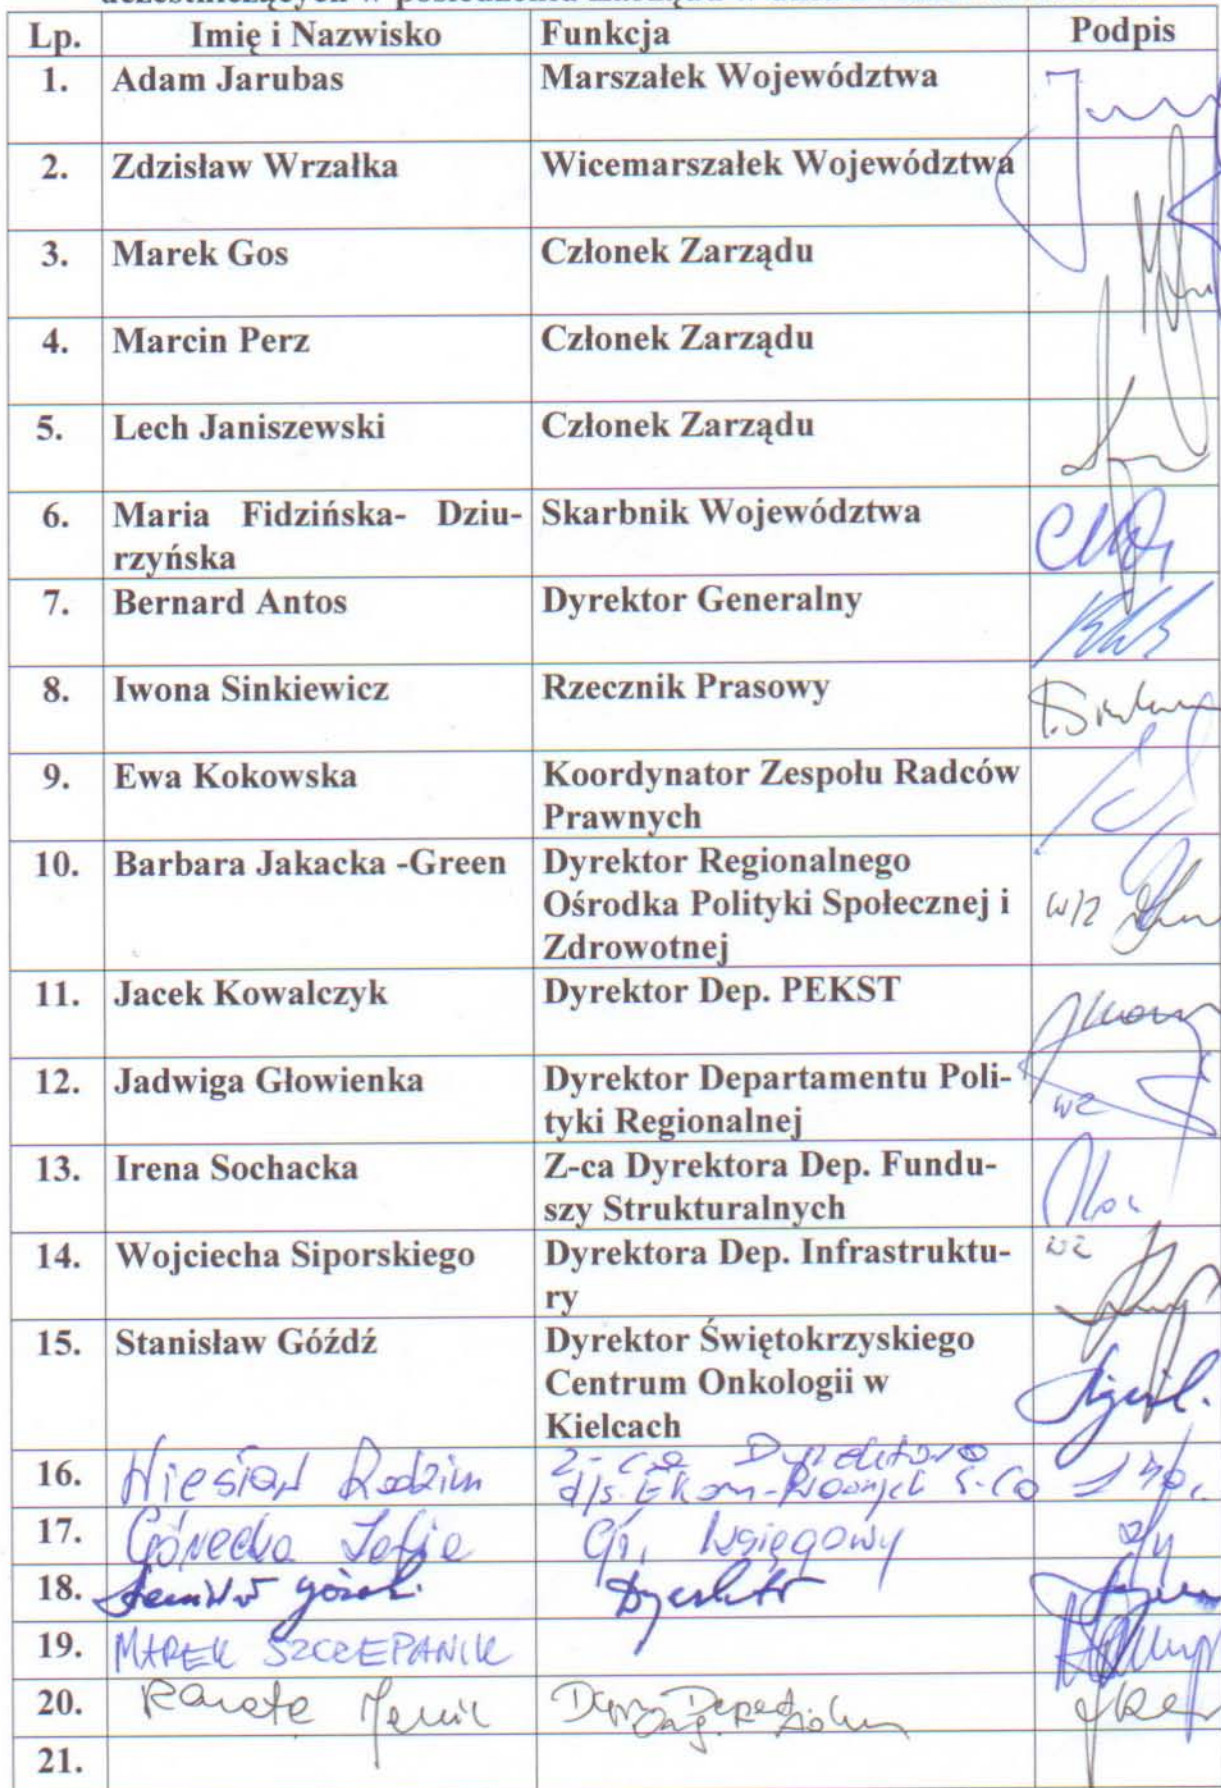 uczestniczących w posiedzeniu Zarządu w dniu
Lp. Imię i Nazwisko Funkcja Podpis
1. Adam Jarubas Marszałek Województwa
2. Zdzisław Wrzałka Wicemarszałek Województwa
3. Marek Gos Członek Zarządu
4. Marcin Perz Członek Zarządu
5. Lech Janiszewski Członek Zarządu
6. Maria Fidzińska- Dziu- Skarbnik Województwa
rzyńska
7. Bernard Antos Dyrektor Generalny
8. Iwona Sinkiewicz Rzecznik Prasowy
9. Ewa Kokowska Koordynator Zespołu Radców
Prawnych
10. Barbara Jakacka -Green Dyrektor Regionalnego
Ośrodka Polityki Społecznej i
Zdrowotnej
w/z
11. Jacek Kowalczyk Dyrektor Dep. PEKST
12. Jadwiga Głowienka Dyrektor Departamentu Poli-
tyki Regionalnej
wz
13. Irena Sochacka Z-ca Dyrektora Dep. Fundu-
szy Strukturalnych
14. Wojciecha Siporskiego Dyrektora Dep. Infrastruktu-
ry
wz
15. Stanisław Góźdź Dyrektor Świętokrzyskiego
Centrum Onkologii w
Kielcach
16. Z-ca Dyrektora
17. Gł. Księgowy
18. Dyrektor
19. MAREK SZCZEPANIK
20. Renata
21.